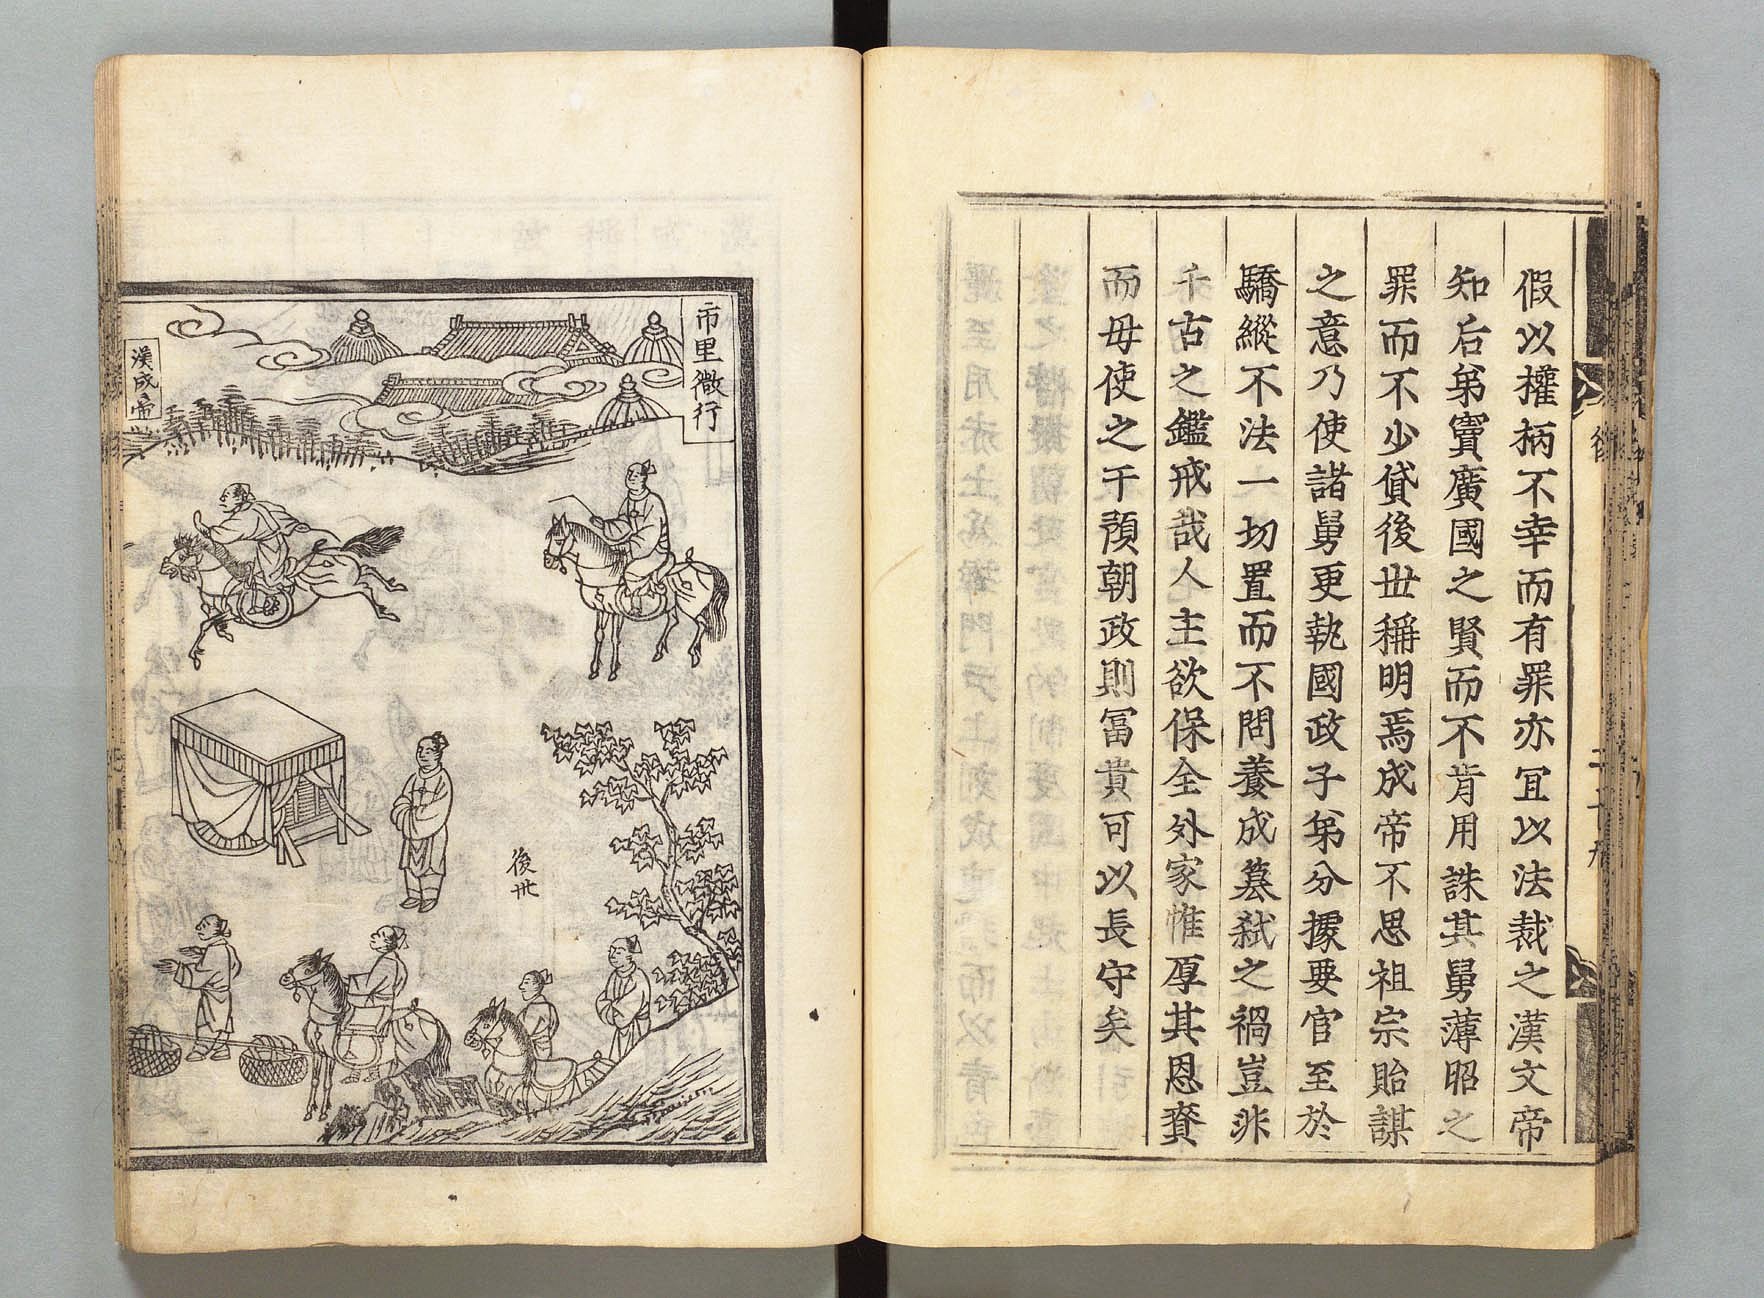 假以權柄不幸而有罪亦冝以法裁之漢文帝
知后弟竇廣國之賢而不肯用誅其舅薄昭之
罪而不少貸後世稱明焉成帝不思祖宗貽謀
之意乃使諸舅更執國政子弟分據要官至於
驕縱不法一切置而不問養成簒弑之禍豈非
千古之鑑戒哉人主欲保全外家惟厚其恩賚
而毋使之干預朝政則冨貴可以長守矣
市里微行
漢成帝
後世